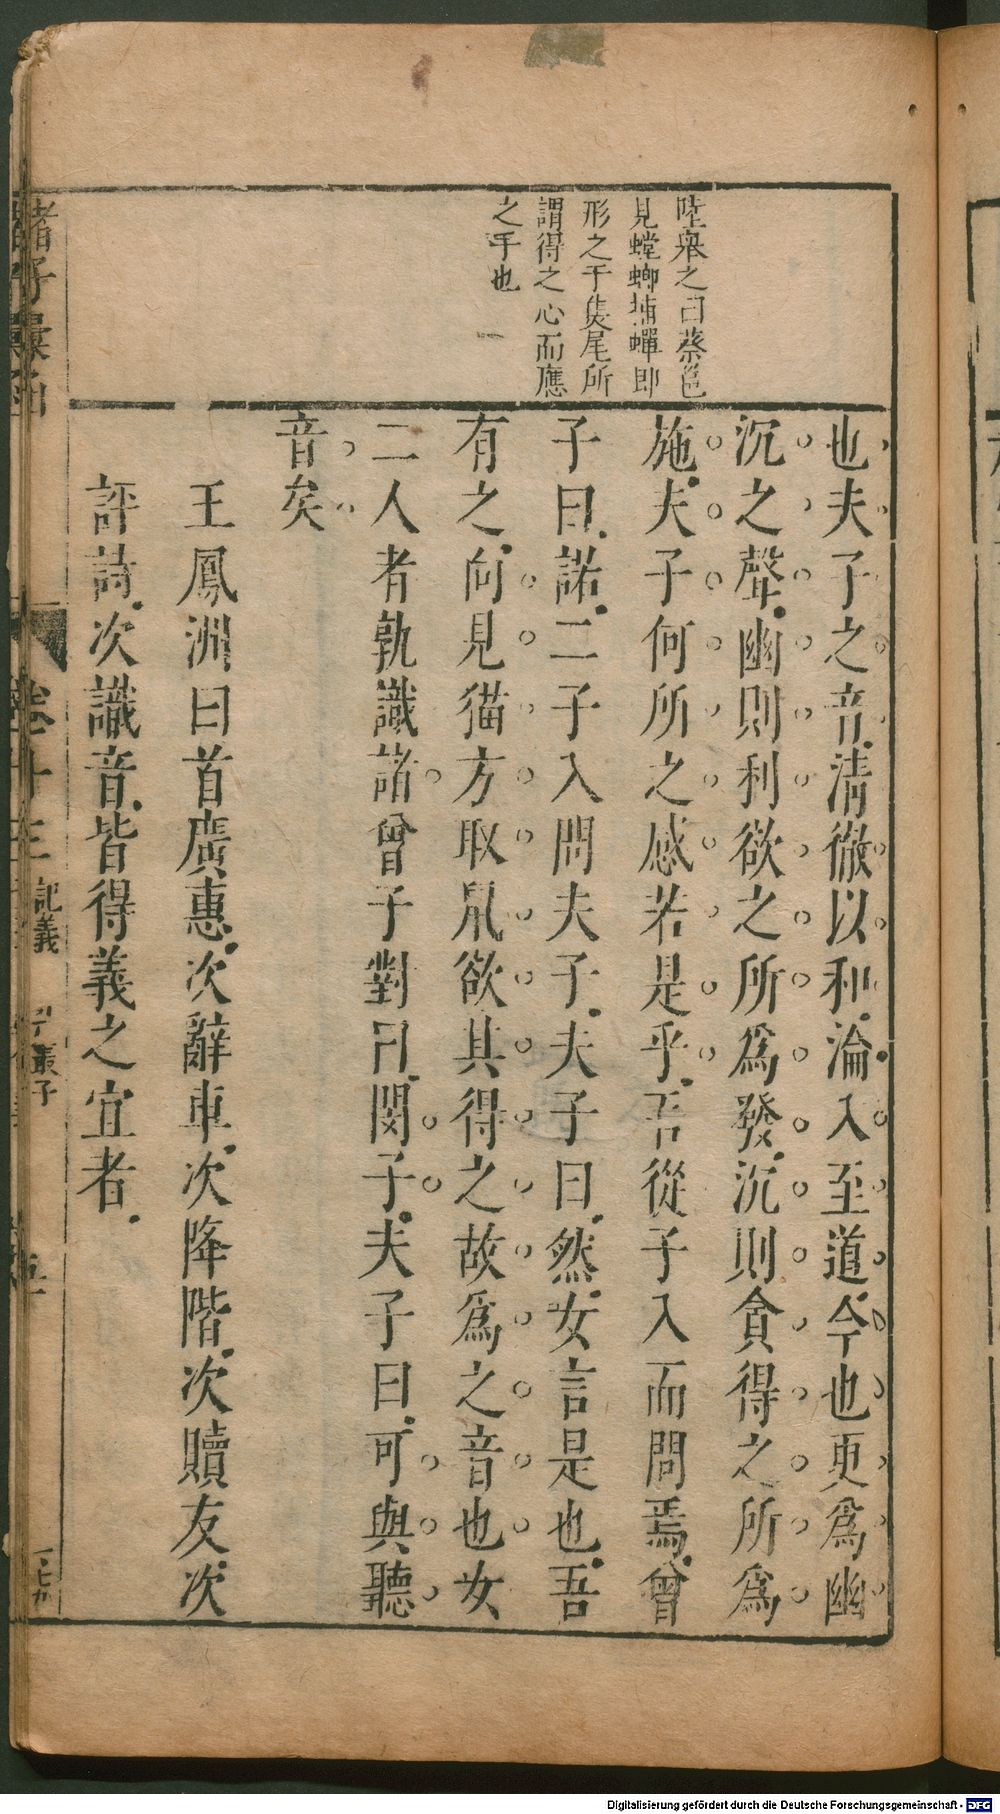 陞舉之曰蔡邕
見螳螂捕蟬即
形之于焦尾所
謂得之心而應
之手也
也夫子之音清徹以和淪入至道今也更爲幽
沉之聲幽則利欲之所爲發沉則貪得之所爲
施夫子何所之感若是乎吾從子入而問焉曾
子曰諾二子入問夫子夫子曰然女言是也吾
有之向見猫方取鼠欲其得之故爲之音也女
二人者孰識諸曾子對曰閔子夫子曰可與聽
音矣
王鳳洲曰首廣惠次辭車次降階次贖友次
評詩次識音皆得義之宜者
諸子彙函
卷十三
記義
孔叢子
五
Digitalisierung gefördert durch die Deutsche Forschungsgemeinschaft - DFG